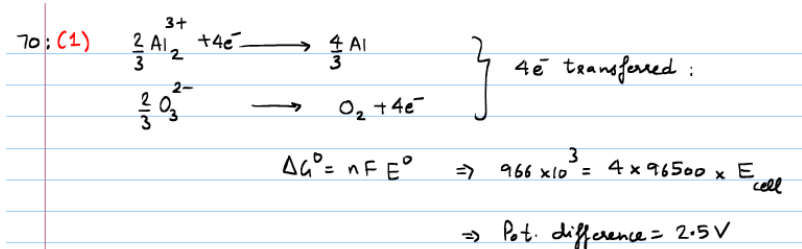 70: (1) 2/3 Al₂³⁺ + 4e⁻ ⟶ 4/3 Al
2/3 O₃²⁻ ⟶ O₂ + 4e⁻ } 4e⁻ transferred :
ΔG° = nFE° ⇒ 966 × 10³ = 4 × 96500 × E_cell
⇒ Pot. difference = 2.5 V